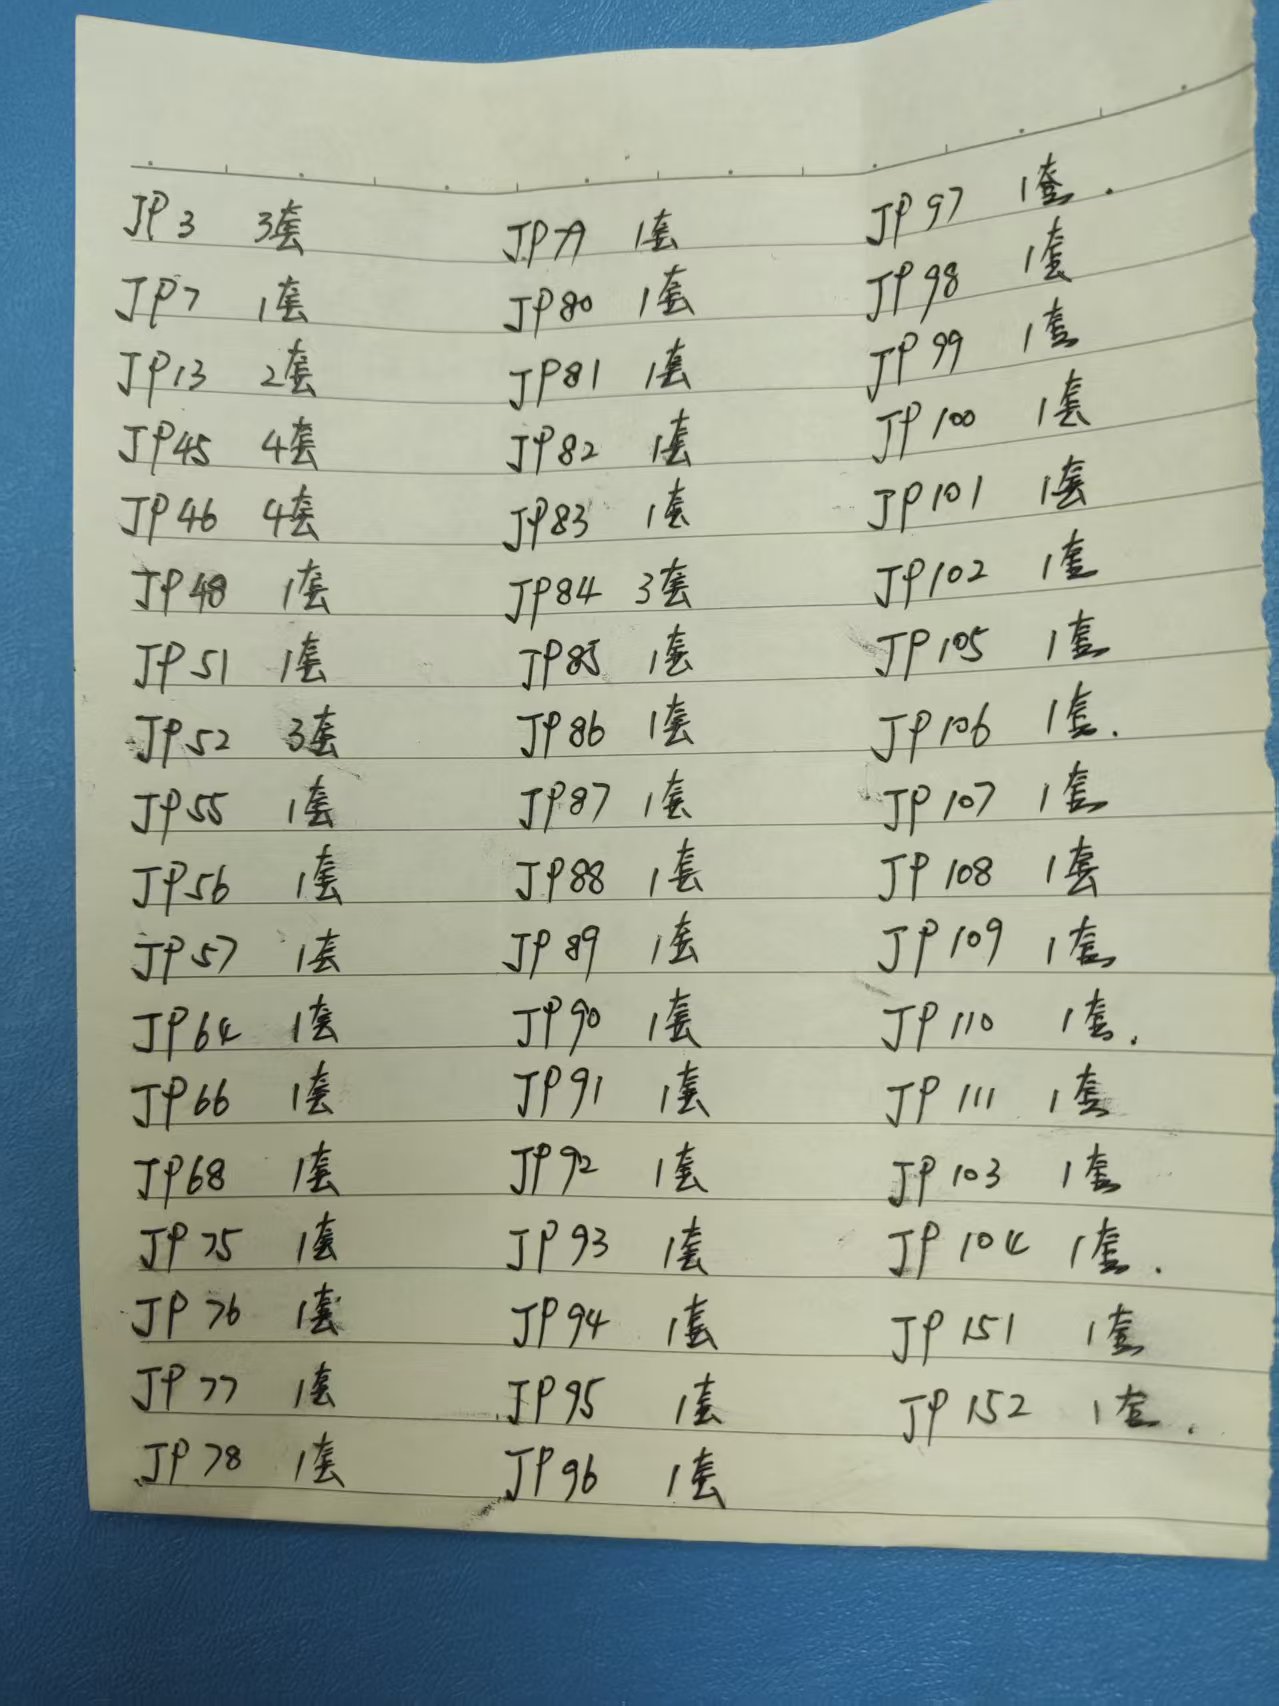 JP3 3套
JP7 1套
JP13 2套
JP45 4套
JP46 4套
JP48 1套
JP51 1套
JP52 3套
JP55 1套
JP56 1套
JP57 1套
JP64 1套
JP66 1套
JP68 1套
JP75 1套
JP76 1套
JP77 1套
JP78 1套
JP79 1套
JP80 1套
JP81 1套
JP82 1套
JP83 1套
JP84 3套
JP85 1套
JP86 1套
JP87 1套
JP88 1套
JP89 1套
JP90 1套
JP91 1套
JP92 1套
JP93 1套
JP94 1套
JP95 1套
JP96 1套
JP97 1套.
JP98 1套
JP99 1套
JP100 1套
JP101 1套
JP102 1套
JP105 1套
JP106 1套.
JP107 1套
JP108 1套
JP109 1套
JP110 1套.
JP111 1套
JP103 1套
JP104 1套.
JP151 1套
JP152 1套.